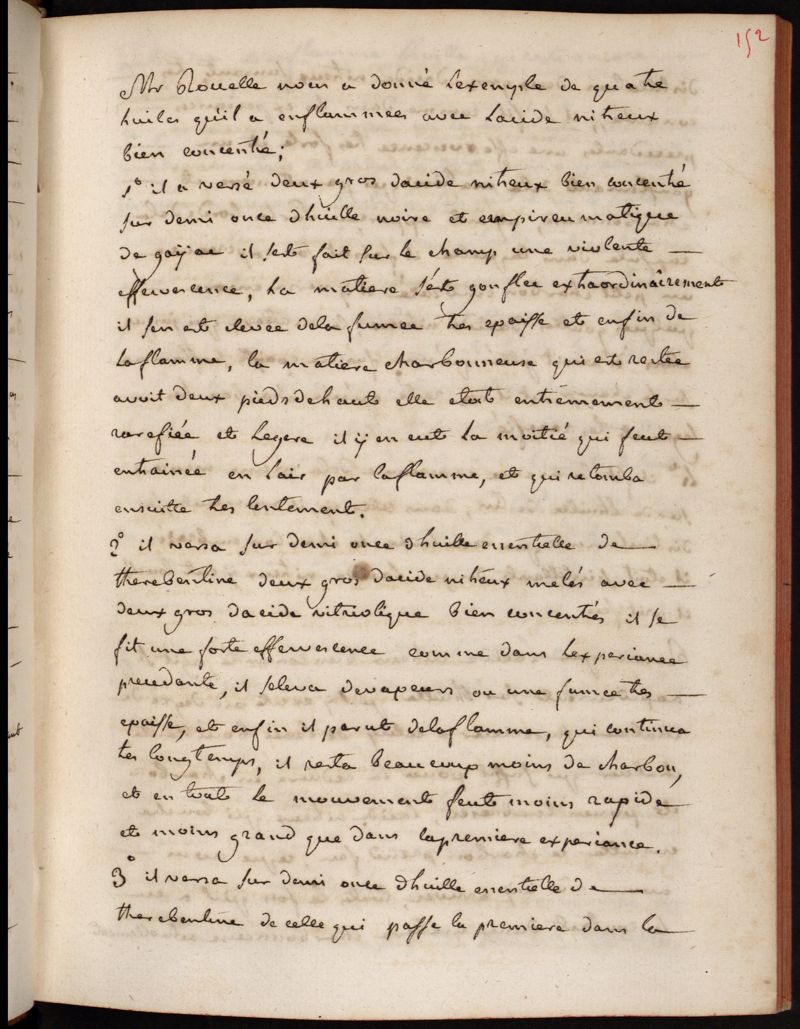 152
Mr Rouelle nous a donné Lexemple de quatre
huiles qu'il a enflammees avec Lacide nitreux
bien concentré;
1° il a versé deux gros dacide nitreux bien concentré
sur demi once dhuille noire et empireumatique
de gayac il sest fait sur le champ une violente —
effervescence, La matiere s'est gonflee extraordinairement
il sen est elevee dela fumee tres epaisse et enfin de
Laflamme, la matiere charbonneuse qui est restee
avoit deux pieds dehaut elle etoit entierement —
rarefiée et Legere il y en eut La moitié qui feut —
entrainée en Lair par laflamme, et qui retomba
ensuitte tres lentement.
2° il versa sur demi once dhuille essentielle de —
therebentine deux gros dacide nitreux melés avec —
deux gros dacide vitriolique bien concentrés il se
fit une forte effervescence comme dans Lexperiance
precedante, il seleva devapeurs ou une fumee tres —
epaisse, et enfin il parut delaflamme, qui continua
tres longtemps, il resta beaucoup moins de charbon,
et en tout le mouvement feut moins rapide
et moins grand que dans lapremiere experiance.
3° il versa sur demi once dhuille essentielle de —
therebentine de celle qui passe la premiere dans la —